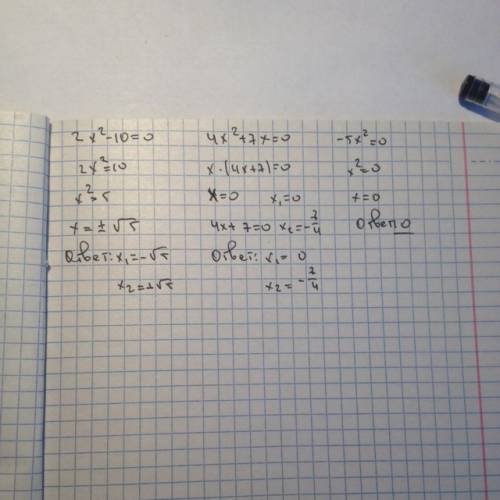 2x²-10=0
2x²=10
x²=5
x=±√5
Ответ: x₁=-√5
x₂=+√5
4x²+7x=0
x·(4x+7)=0
x=0 x₁=0
4x+7=0 x₂=-7/4
Ответ: x₁=0
x₂=-7/4
-5x²=0
x²=0
x=0
Ответ: 0